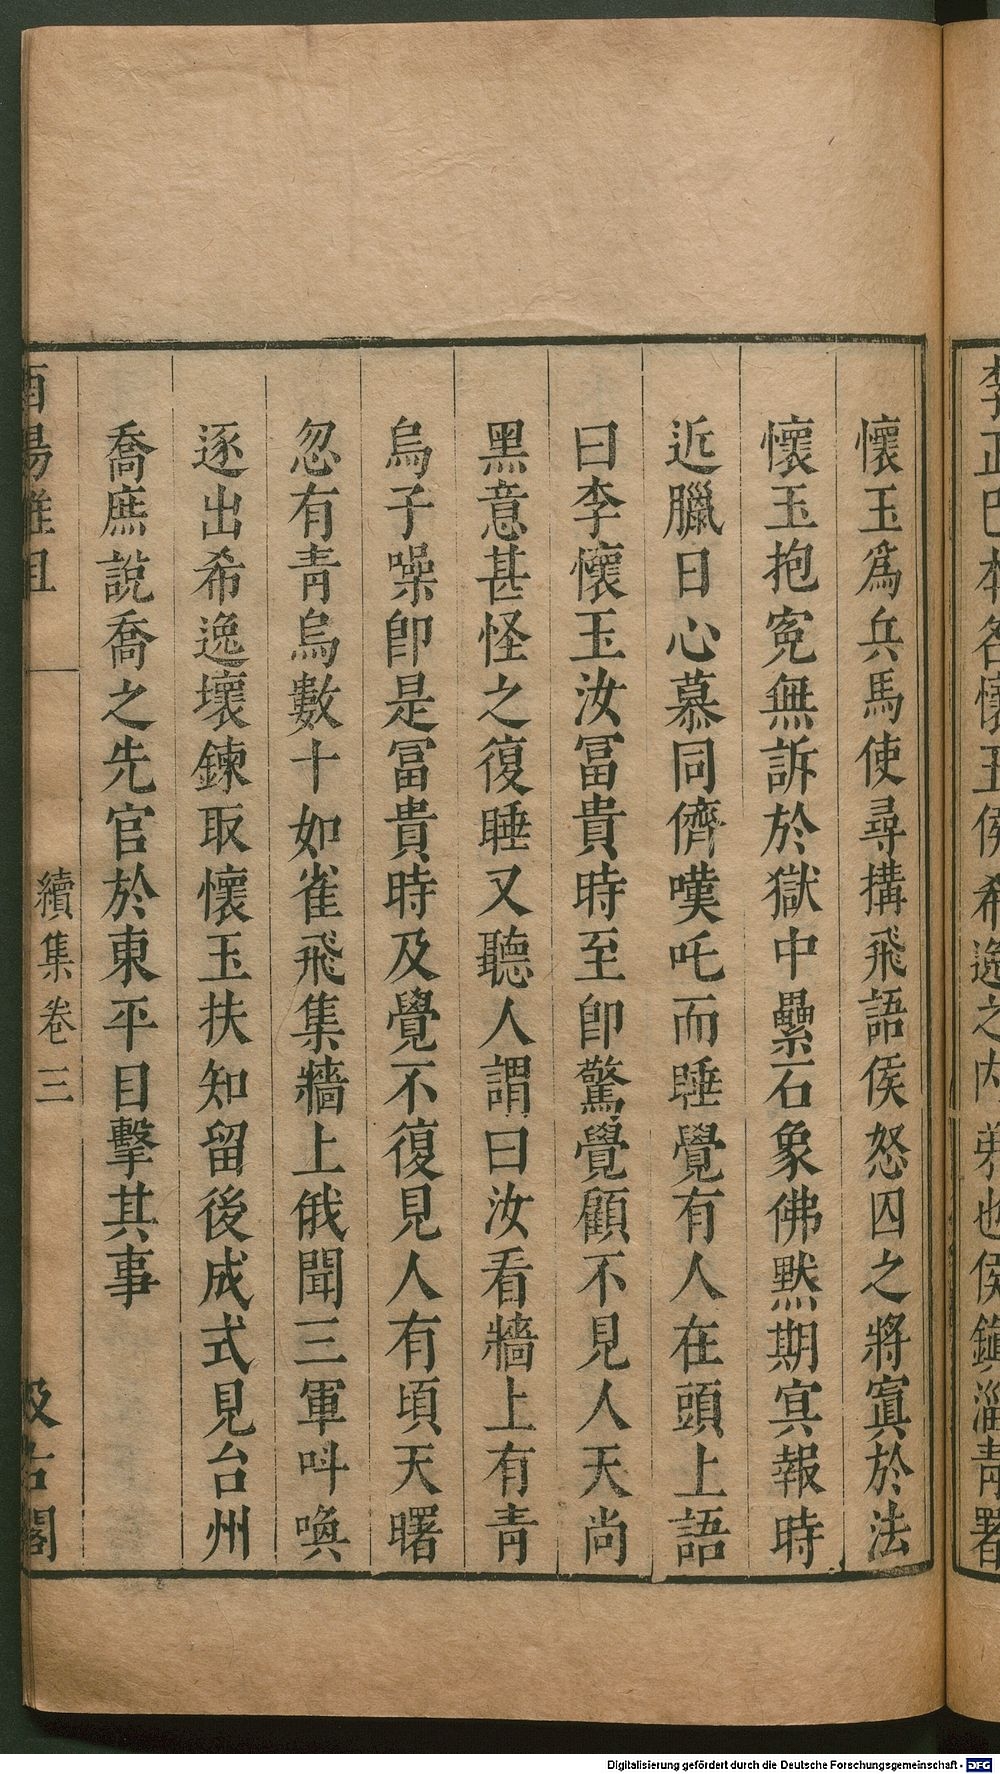 李正巳本名懷玉侯希逸之内弟也侯鎮淄青署
懷玉爲兵馬使尋搆飛語侯怒囚之將寘於法
懷玉抱寃無訴於獄中壘石象佛黙期㝠報時
近臘日心慕同儕嘆吒而睡覺有人在頭上語
曰李懷玉汝冨貴時至卽驚覺顧不見人天尚
黑意甚怪之復睡又聽人謂曰汝看牆上有青
烏子噪卽是冨貴時及覺不復見人有頃天曙
忽有青烏數十如雀飛集牆上俄聞三軍叫喚
逐出希逸壞鍊取懷玉扶知留後成式見台州
喬庶說喬之先官於東平目擊其事
酉陽雜俎 續集卷三 汲古閣
Digitalisierung gefördert durch die Deutsche Forschungsgemeinschaft - DFG